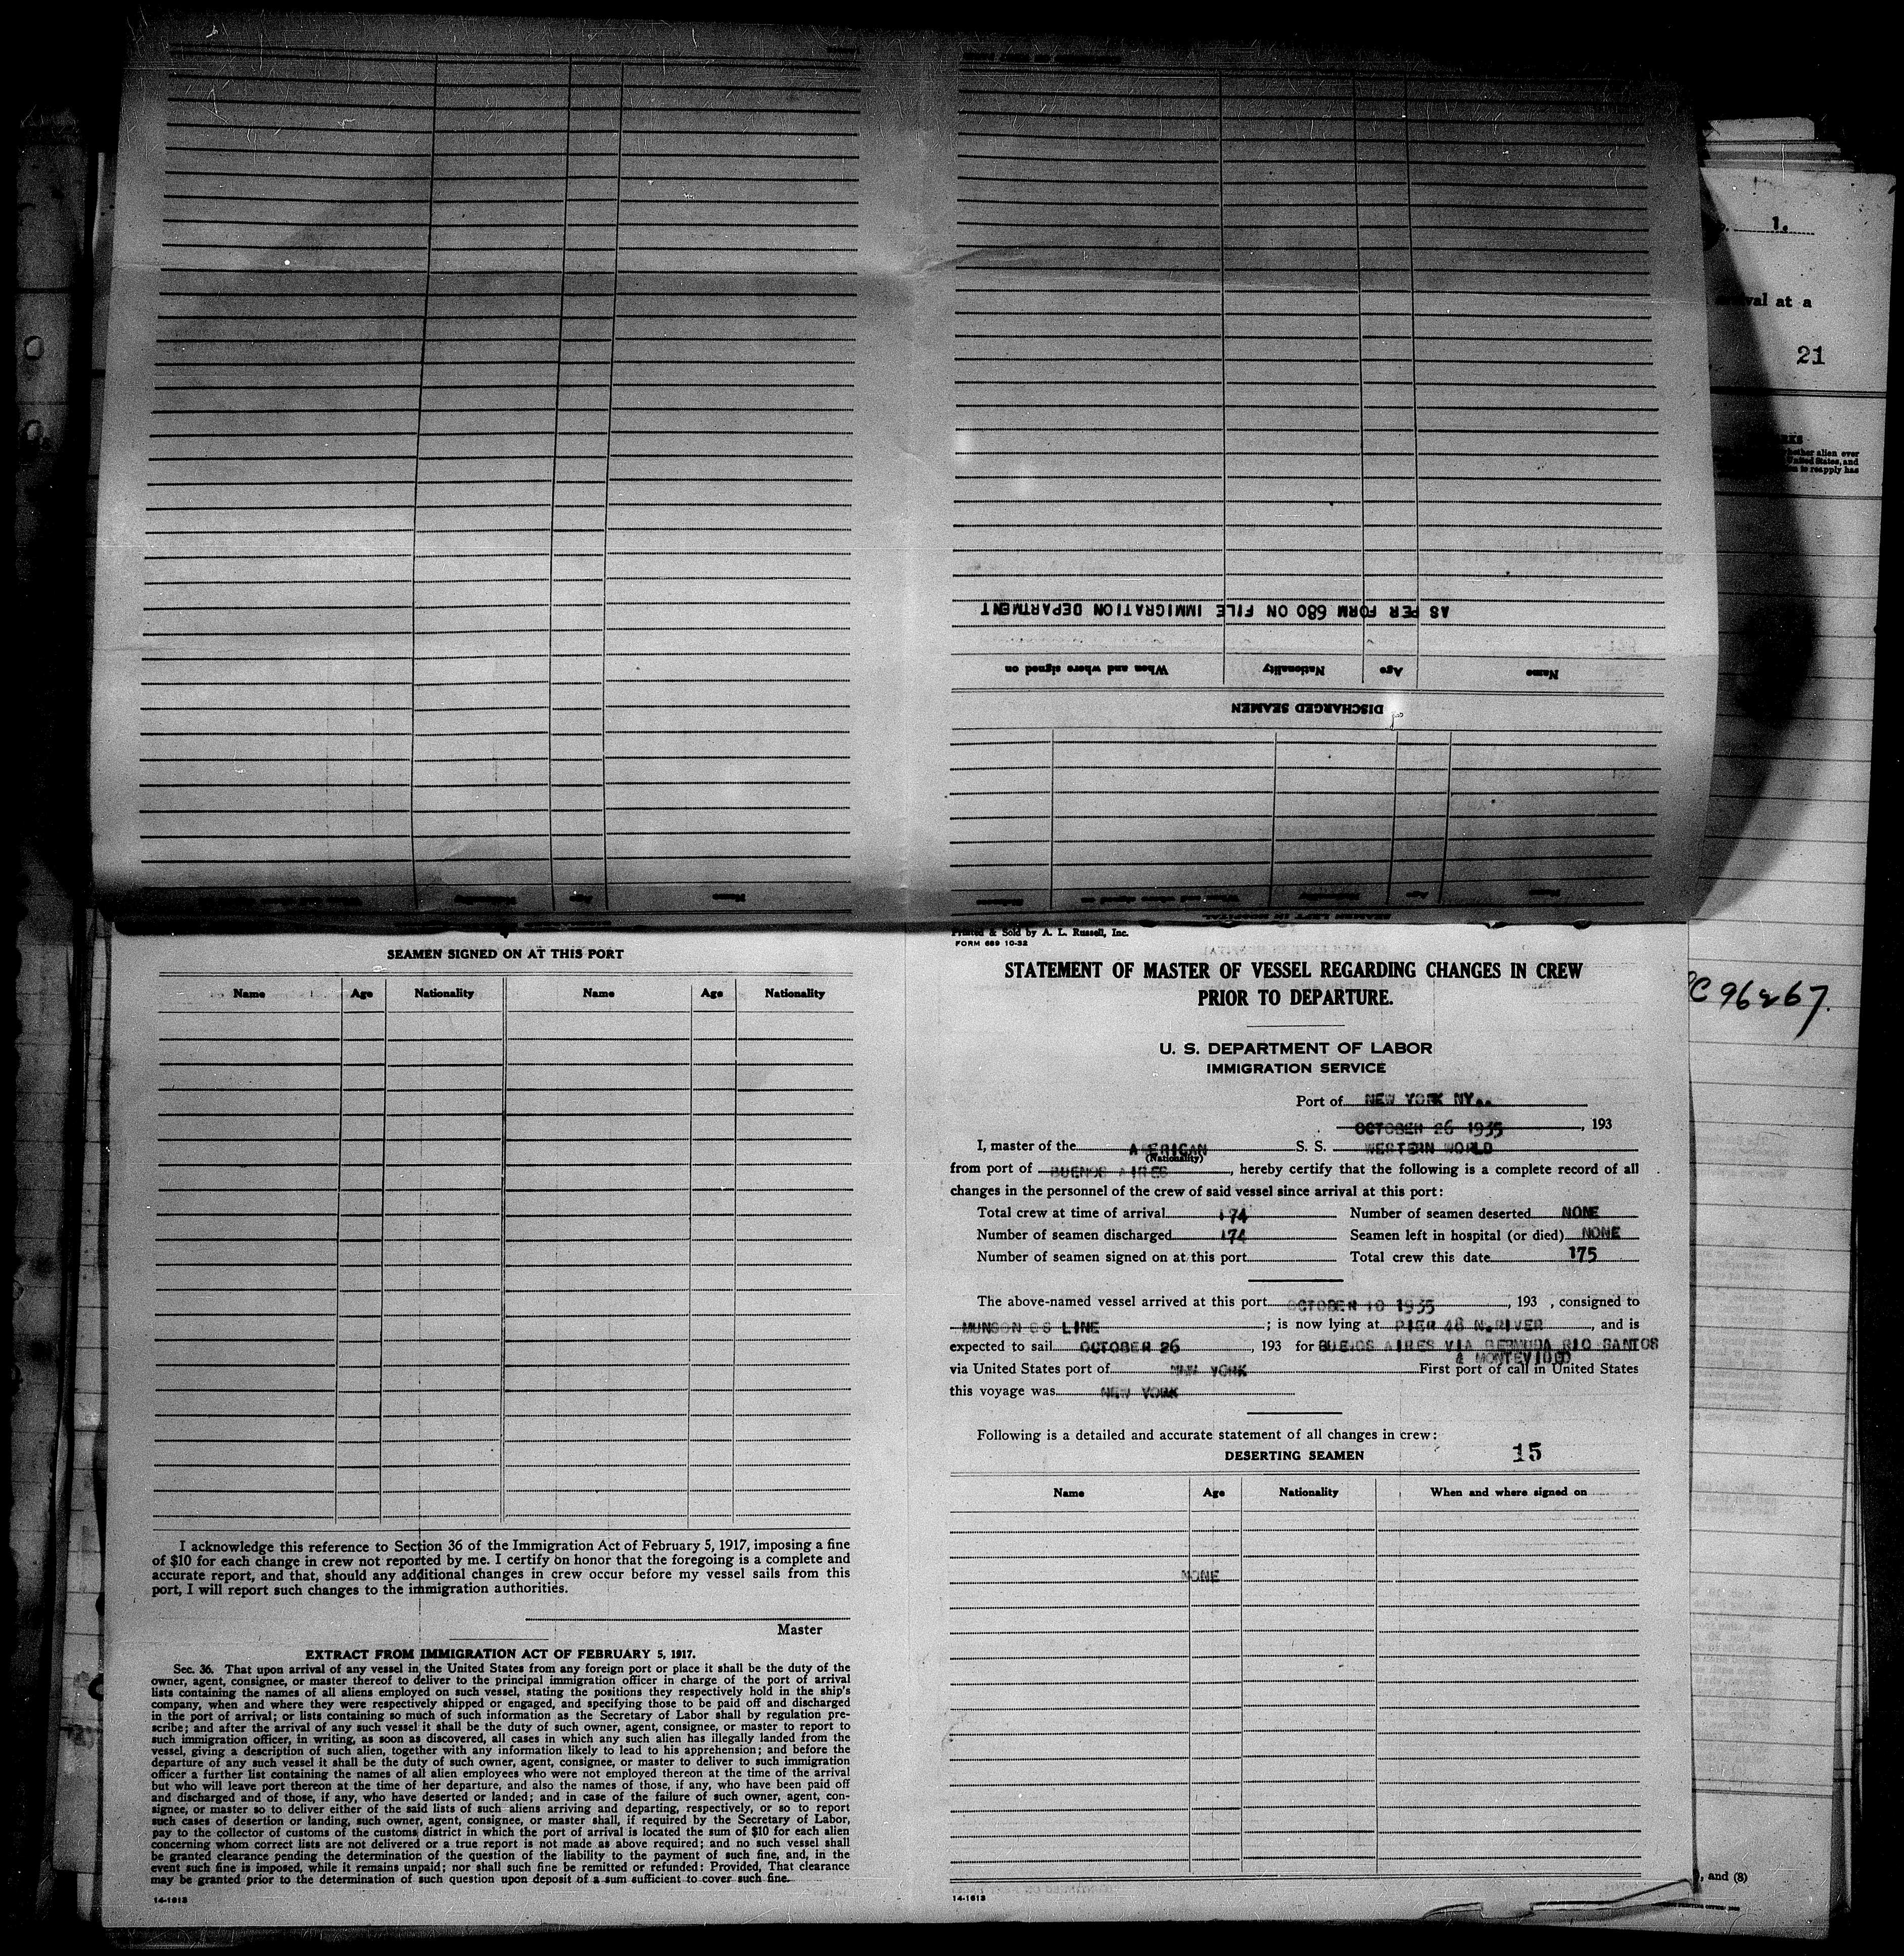 1.
val at a
21
RKS
hether alien ever
United States, and
on to reapply has
AS PER FORM 680 ON FILE IMMIGRATION DEPARTMENT
Name Age Nationality When and where signed on
DISCHARGED SEAMEN
Name Age Nationality When and where signed on
SEAMEN LEFT IN HOSPITAL
SEAMEN SIGNED ON AT THIS PORT
Name Age Nationality Name Age Nationality
I acknowledge this reference to Section 36 of the Immigration Act of February 5, 1917, imposing a fine
of $10 for each change in crew not reported by me. I certify on honor that the foregoing is a complete and
accurate report, and that, should any additional changes in crew occur before my vessel sails from this
port, I will report such changes to the immigration authorities.
Master
EXTRACT FROM IMMIGRATION ACT OF FEBRUARY 5, 1917.
Sec. 36. That upon arrival of any vessel in the United States from any foreign port or place it shall be the duty of the
owner, agent, consignee, or master thereof to deliver to the principal immigration officer in charge of the port of arrival
lists containing the names of all aliens employed on such vessel, stating the positions they respectively hold in the ship's
company, when and where they were respectively shipped or engaged, and specifying those to be paid off and discharged
in the port of arrival; or lists containing so much of such information as the Secretary of Labor shall by regulation pre-
scribe; and after the arrival of any such vessel it shall be the duty of such owner, agent, consignee, or master to report to
such immigration officer, in writing, as soon as discovered, all cases in which any such alien has illegally landed from the
vessel, giving a description of such alien, together with any information likely to lead to his apprehension; and before the
departure of any such vessel it shall be the duty of such owner, agent, consignee, or master to deliver to such immigration
officer a further list containing the names of all alien employees who were not employed thereon at the time of the arrival
but who will leave port thereon at the time of her departure, and also the names of those, if any, who have been paid off
and discharged and of those, if any, who have deserted or landed; and in case of the failure of such owner, agent, con-
signee, or master so to deliver either of the said lists of such aliens arriving and departing, respectively, or so to report
such cases of desertion or landing, such owner, agent, consignee, or master shall, if required by the Secretary of Labor,
pay to the collector of customs of the customs district in which the port of arrival is located the sum of $10 for each alien
concerning whom correct lists are not delivered or a true report is not made as above required; and no such vessel shall
be granted clearance pending the determination of the question of the liability to the payment of such fine, and, in the
event such fine is imposed, while it remains unpaid; nor shall such fine be remitted or refunded: Provided, That clearance
may be granted prior to the determination of such question upon deposit of a sum sufficient to cover such fine.
14-1613
Printed & Sold by A. L. Russell, Inc.
FORM 689 10-32
STATEMENT OF MASTER OF VESSEL REGARDING CHANGES IN CREW
PRIOR TO DEPARTURE.
U. S. DEPARTMENT OF LABOR
IMMIGRATION SERVICE
Port of NEW YORK NY..
OCTOBER 26 1935, 193
I, master of the AMERICAN S. S. WESTERN WORLD
(Nationality)
from port of BUENOS AIRES, hereby certify that the following is a complete record of all
changes in the personnel of the crew of said vessel since arrival at this port:
Total crew at time of arrival 174 Number of seamen deserted NONE
Number of seamen discharged 174 Seamen left in hospital (or died) NONE
Number of seamen signed on at this port Total crew this date 175
The above-named vessel arrived at this port OCTOBER 10 1935, 193 , consigned to
MUNSON SS LINE; is now lying at PIER 48 N.RIVER, and is
expected to sail OCTOBER 26, 193 for BUENOS AIRES VIA BERMUDA RIO SANTOS
& MONTEVIDEO
via United States port of NEW YORK First port of call in United States
this voyage was NEW YORK
Following is a detailed and accurate statement of all changes in crew:
DESERTING SEAMEN 15
Name Age Nationality When and where signed on
NONE
14-1613
C 96267.
, and (8)